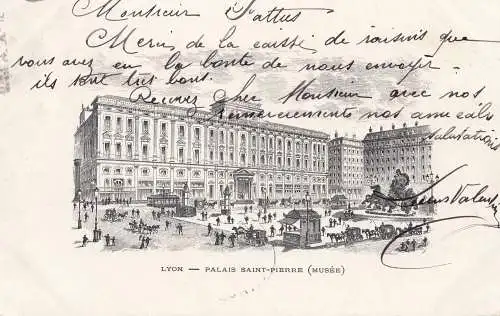 Monsieur Pattus
Merci de la caisse de raisins que
vous avez eu la bonté de nous envoyer
ils sont très bons.
Recevez cher Monsieur avec nos
remerciements nos amicales
salutations
LYON — PALAIS SAINT-PIERRE (MUSÉE)